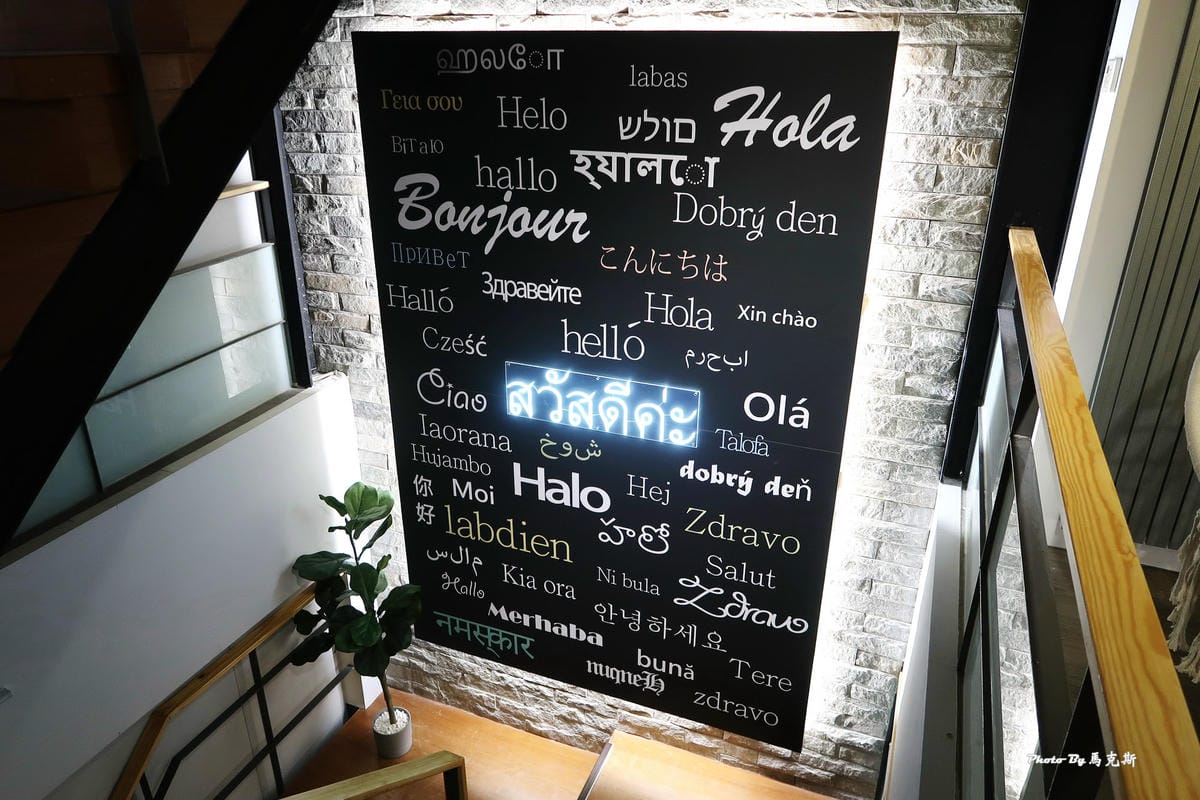 ஹலோ
labas
Γεια σου
Helo
Hola
םולש
Вітаю
hallo
ह्यालो
Bonjour
Dobrý den
Привет
こんにちは
Здравейте
Halló
Hola
Xin chào
Cześć
helló
م ر ح ب ا
Ciao
สวัสดีค่ะ
Olá
Iaorana
ش و خ
Talofa
Hujambo
dobrý deň
你好
Moi
Halo
Hej
labdien
హలో
Zdravo
م ا ل س
Hallo
Kia ora
Ni bula
Salut
Zdravo
Merhaba
안녕하세요
नमस्कार
nuqneH
bună
Tere
zdravo
Photo By 馬克斯